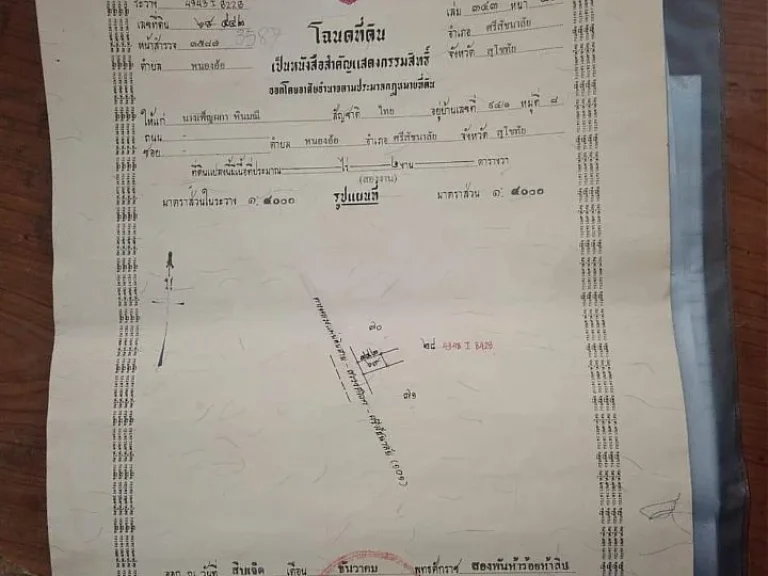 ระวาง 4943 I 8228 เล่ม ๓๔๓ หน้า
เลขที่ดิน โฉนดที่ดิน อำเภอ ศรีสัชนาลัย
หน้าสำรวจ ๓๕๘๗ 3587 เป็นหนังสือสำคัญแสดงกรรมสิทธิ์ จังหวัด สุโขทัย
ตำบล หนองอ้อ ออกโดยอาศัยอำนาจตามประมวลกฎหมายที่ดิน
ให้แก่ สัญชาติ ไทย อยู่บ้านเลขที่ ๙๔/๑ หมู่ที่ ๘
ถนน - ตำบล หนองอ้อ อำเภอ ศรีสัชนาลัย จังหวัด สุโขทัย
ซอย -
ที่ดินแปลงนี้มีเนื้อที่ประมาณ ไร่ ๒ งาน ตารางวา
(สองงาน)
มาตราส่วนในระวาง ๑: ๔๐๐๐ รูปแผนที่ มาตราส่วน ๑: ๔๐๐๐
๗๐
๒๘ 4943 I 8428
๗๑
ทางหลวงแผ่นดินสาย - สวรรคโลก - ศรีสัชนาลัย (๑๐๑)
ออก ณ วันที่ สิบเจ็ด เดือน ธันวาคม พุทธศักราช สองพันห้าร้อยห้าสิบ